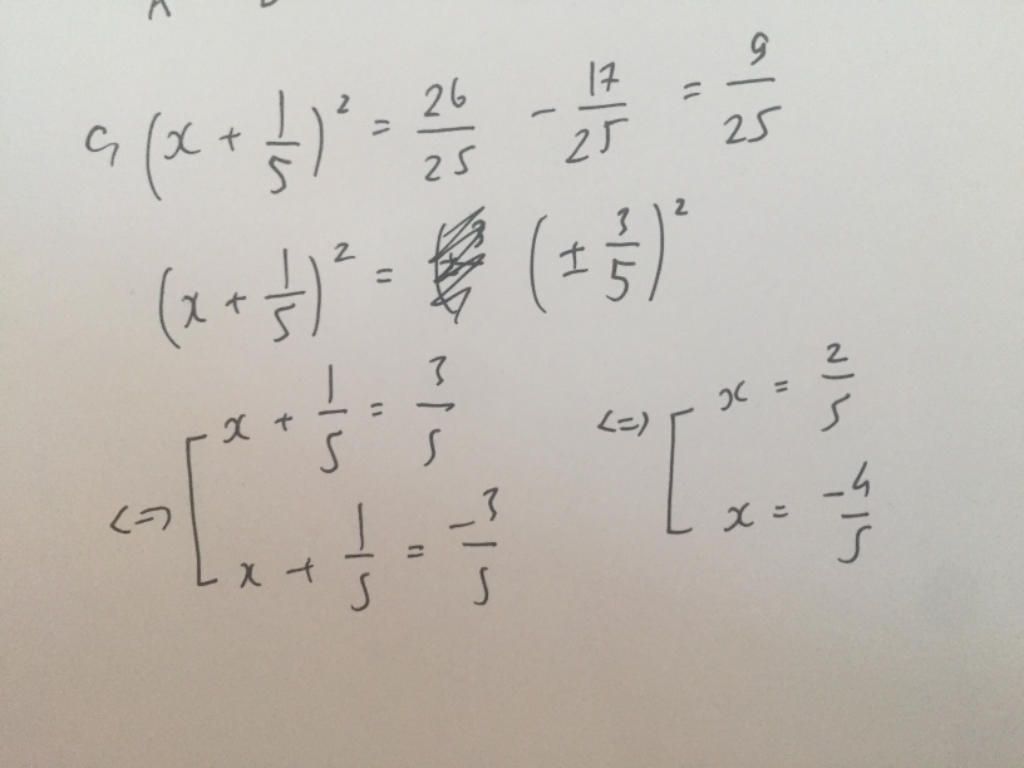 (x + 1/5)² = 26/25 - 17/25 = 9/25
(x + 1/5)² = (± 3/5)²
<=> [ x + 1/5 = 3/5 <=> [ x = 2/5
x + 1/5 = -3/5 x = -4/5